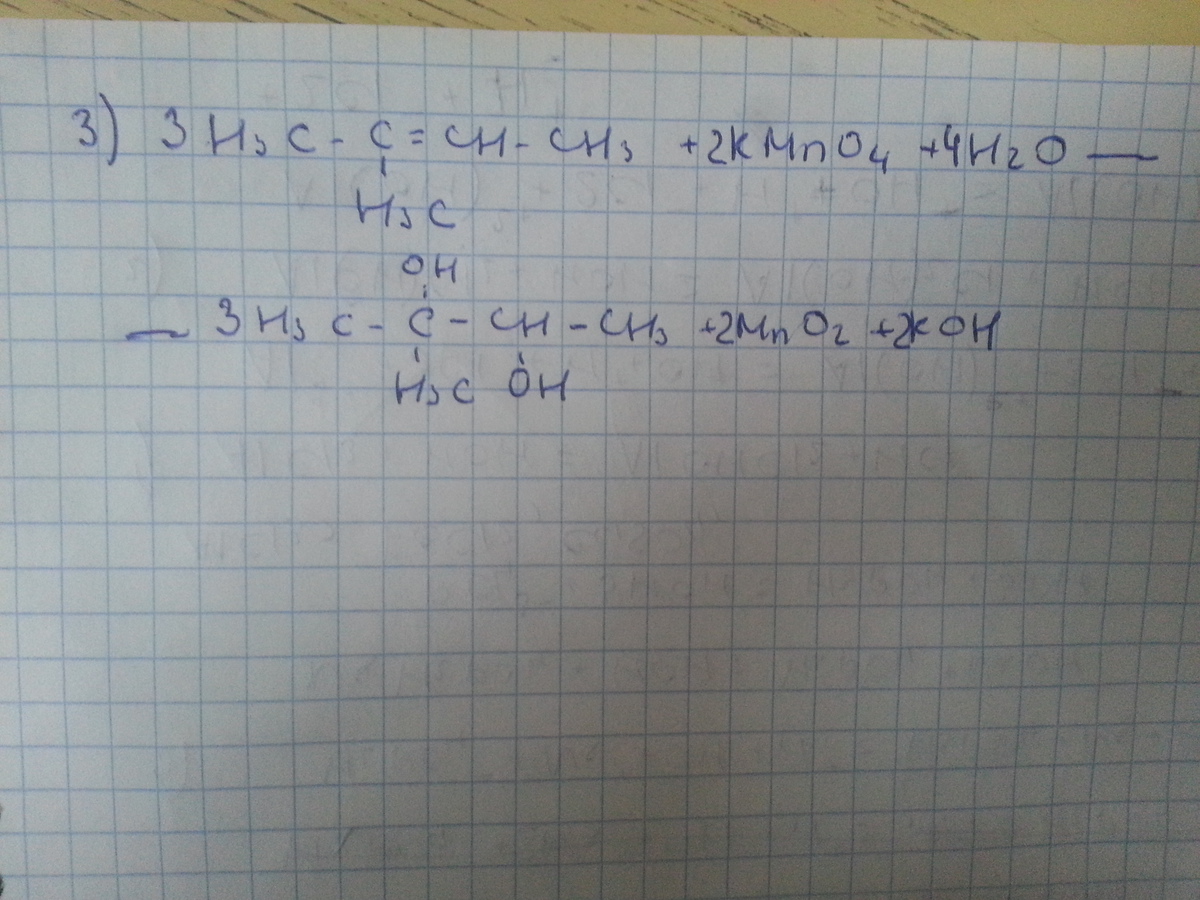 3) 3 H₃C - C = CH - CH₃ + 2KMnO₄ + 4H₂O —
H₃C
OH
— 3 H₃C - C - CH - CH₃ + 2MnO₂ + 2KOH
H₃C OH